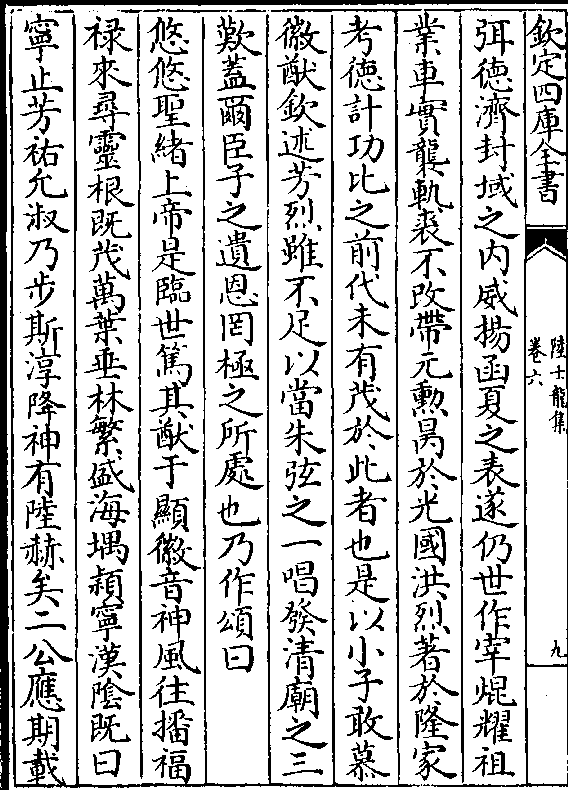 欽定四庫全書
陸士龍集
卷六
九
弭德濟封域之内威揚函夏之表遂仍世作宰焜耀祖
業車實襲軌裘不改帶元勲昺於光國洪烈著於隆家
考德計功比之前代未有茂於此者也是以小子敢慕
徽猷欽述芳烈雖不足以當朱弦之一唱發清廟之三
歎蓋爾臣子之遺恩罔極之所處也乃作頌曰
悠悠聖緒上帝是臨世篤其猷于顯徽音神風往播福
禄來尋靈根既茂萬葉垂林繁盛海堣潁寧漢陰既曰
寧止芳祐允淑乃步斯淳降神有陸赫矣二公應期載